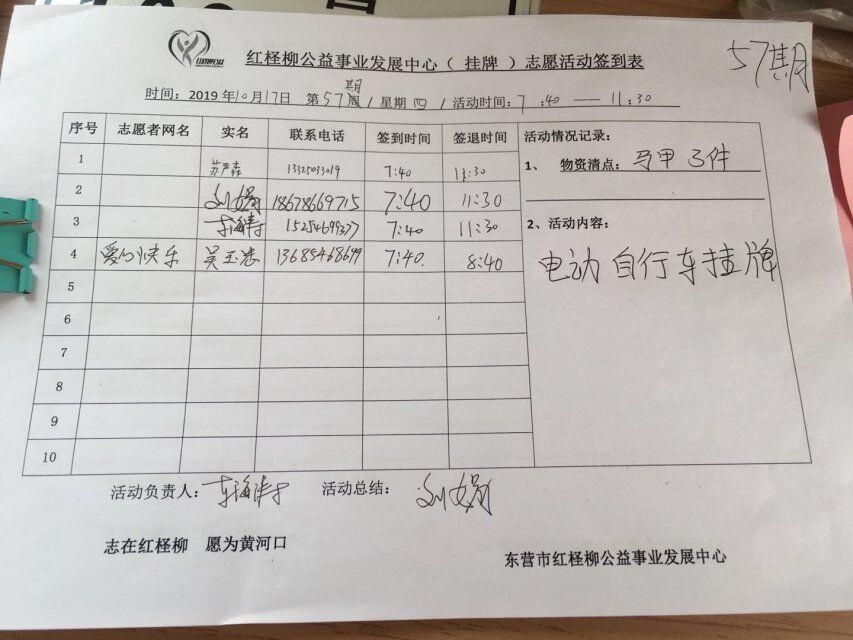 红柽柳公益事业发展中心（ 挂牌 ）志愿活动签到表
57期
时间：2019年10月17日 第57期/星期四/活动时间：7:40——11:30
序号 志愿者网名 实名 联系电话 签到时间 签退时间 活动情况记录：
1 13325033019 7:40 11:30
1、 物资清点：马甲 3件
2 刘娟 18678669715 7:40 11:30
3 15254699377 7:40 11:30
2、活动内容：
4 爱心快乐 13685468699 7:40. 8:40
电动自行车挂牌
5
6
7
8
9
10
活动负责人： 活动总结： 刘娟
志在红柽柳 愿为黄河口
东营市红柽柳公益事业发展中心